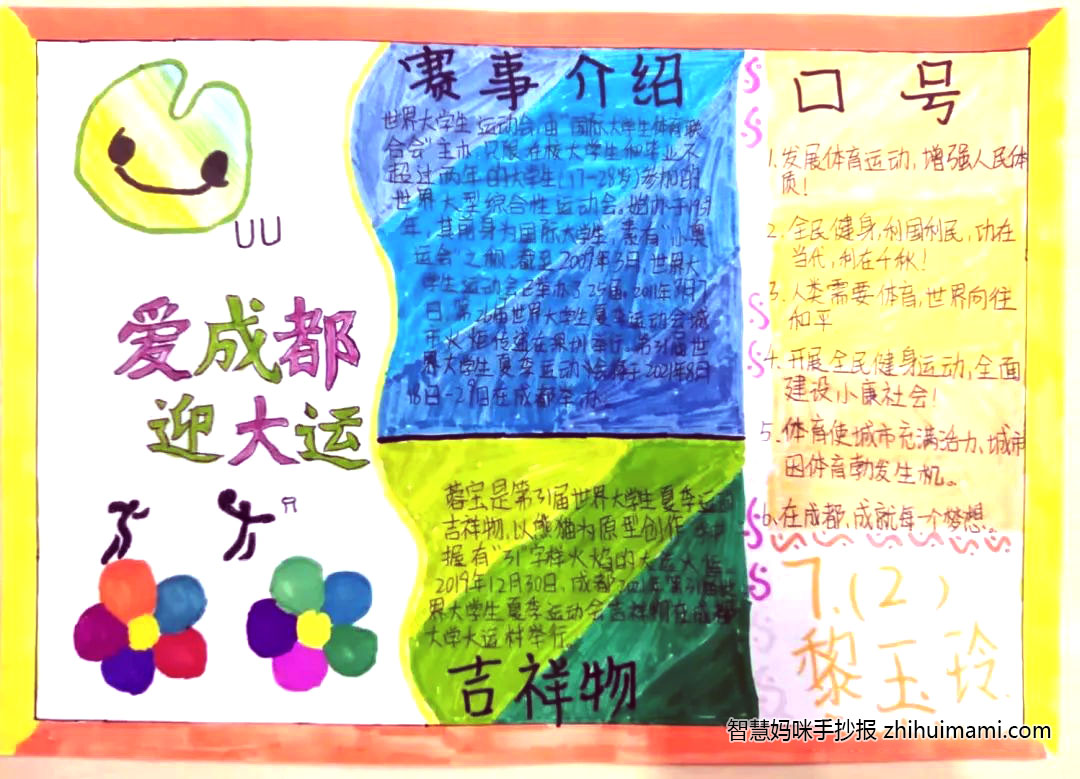 UU
爱成都
迎大运
赛事介绍
世界大学生运动会,由"国际大学生体育联
合会"主办,只限在校大学生和毕业不
超过两年的大学生(17-28岁)参加的
世界大型综合性运动会。始办于1959
年,其前身为国际大学生,素有"小奥
运会"之称。截至2009年3日,世界大
学生运动会已举办了25届。2011年
日,第26届世界大学生夏季运动会城
市火炬传递在深圳举行。第31届世
界大学生夏季运动会将于2021年8日
18日-29日在成都举办。
蓉宝是第31届世界大学生夏季运
吉祥物,以熊猫为原型创作
握有"31"字样火焰的大运火炬
2019年12月30日,成都2021年第31届世
界大学生夏季运动会吉祥物在成都
大学大运村举行。
吉祥物
口号
1.发展体育运动,增强人民体
质!
2.全民健身,利国利民,功在
当代,利在千秋!
3.人类需要体育,世界向往
和平
4.开展全民健身运动,全面
建设小康社会!
5.体育使城市充满活力,城市
因体育勃发生机。
6.在成都,成就每一个梦想。
7.(2)
黎玉玲
智慧妈咪手抄报 zhihuimami.com